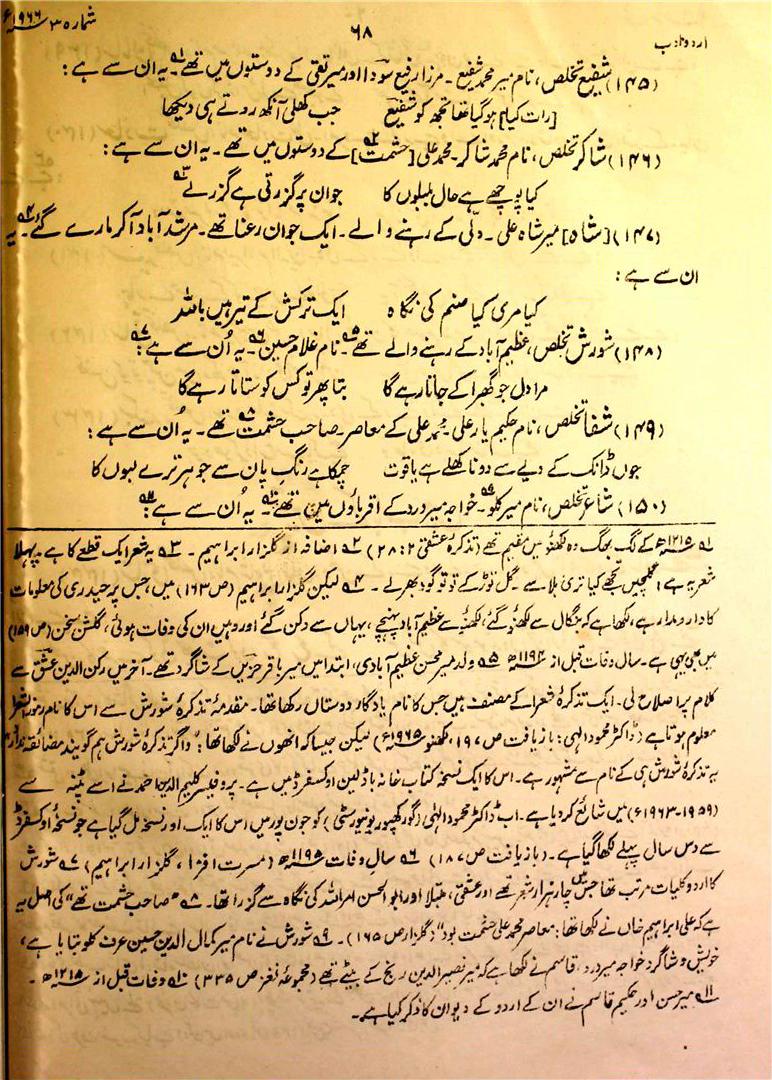 اردو ادب ۶۸ شمارہ ۳ ۱۹۶۶ء
(۱۴۵) شفیع تخلص، نام میر محمد شفیع۔ مرزا رفیع سودا اور میر تقی کے دوستوں میں تھے۔ یہ ان سے ہے:
[رات کیا] ہو گیا تھا تجھ کو شفیع جب کھلی آنکھ روتے ہی دیکھا
(۱۴۶) شاکر تخلص، نام محمد شاکر۔ محمد علی [حشمت] کے دوستوں میں تھے۔ یہ ان سے ہے:
کیا پوچھے ہے حال بلبلوں کا جو ان پر گزرتی ہے گزرے
(۱۴۷) [شاہ] میر شاہ علی۔ دلّی کے رہنے والے۔ ایک جوان رعنا تھے۔ مرشد آباد آ کر مارے گئے۔ یہ
ان سے ہے:
کیا مری کیا صنم کی نگاہ ایک ترکش کے تیر ہیں باللہ
(۱۴۸) شورش تخلص، عظیم آباد کے رہنے والے تھے۔ نام غلام حسین۔ یہ اُن سے ہے:
مرا دل جو گھبرا کے جاتا رہے گا بتا پھر تو کس کو ستاتا رہے گا
(۱۴۹) شفا تخلص، نام حکیم یار علی۔ محمد علی کے معاصر۔ صاحب حشمت تھے۔ یہ اُن سے ہے:
جوں ڈانک کے دیے سے دونا کھلے ہے یاقوت چمکا ہے رنگِ پان سے جوہر ترے لبوں کا
(۱۵۰) شاعر تخلص، نام میر کلو۔ خواجہ میر درد کے اقرباؤں میں تھے۔ یہ اُن سے ہے:
۱؎ ۱۲۱۵ھ کے لگ بھگ وہ لکھنؤ میں مقیم تھے (تذکرۂ عشقی ۲: ۲۸) ۲؎ اضافہ از گلزار ابراہیم۔ ۳؎ یہ شعر ایک قطع کا ہے۔ پہلا
شعر یہ ہے؛ گلچیں تجھے کیا تری بلا سے گل توڑ کے تو تو گود بھر لے۔ ۴؎ لیکن گلزار ابراہیم (ص ۱۶۳) میں، جس پر حیدری کی معلومات
کا دار و مدار ہے، لکھا ہے کہ بنگال سے لکھنؤ گئے، لکھنؤ سے عظیم آباد پہنچے، یہاں سے دکن گئے اور وہیں ان کی وفات ہوئی، گلشن سخن (ص ۱۵۹)
میں بھی یہی ہے۔ سال وفات قبل از ۱۱۹۴ھ ۵؎ ولد میر محسن عظیم آبادی، ابتدا میں میر باقر حزیں کے شاگرد تھے۔ آخر میں رکن الدین عشق سے
کلام پر اصلاح لی۔ ایک تذکرۂ شعرا کے مصنف ہیں جس کا نام یادگار دوستاں رکھا تھا۔ مقدمۂ تذکرۂ شورش سے اس کا نام رموز الشعرا
معلوم ہوتا ہے (ڈاکٹر محمود الٰہی: بازیافت ص ۱۹۷، لکھنؤ ۱۹۶۵ء) لیکن جیسا کہ انھوں نے لکھا تھا: "و اگر تذکرۂ شورش ہم گویند مضائقہ ندارد"
یہ تذکرۂ شورش ہی کے نام سے مشہور ہے۔ اس کا ایک نسخہ کتاب خانہ باڈلین اوکسفرڈ میں ہے۔ پروفیسر کلیم الدین احمد نے اسے پٹنہ سے
(۱۹۵۹-۱۹۶۳ء) میں شائع کر دیا ہے۔ اب ڈاکٹر محمود الٰہی (گورکھپور یونیورسٹی) کو جون پور میں اس کا ایک اور نسخہ مل گیا ہے جو نسخۂ اوکسفرڈ
سے دس سال پہلے لکھا گیا ہے۔ (بازیافت ص ۱۸۷) ۶؎ سال وفات ۱۱۹۵ھ (مسرت افزا، گلزار ابراہیم) ۷؎ شورش
کا اردو کلیات مرتب تھا جس میں چار ہزار شعر تھے اور عشقی، مبتلا اور ابو الحسن امراللہ کی نگاہ سے گزرا تھا۔ ۸؎ "صاحب حشمت تھے" کی اصل یہ
ہے کہ علی ابراہیم خاں نے لکھا تھا: معاصر محمد علی حشمت بود" (گلزار ص ۱۶۵)۔ ۹؎ شورش نے نام میر کمال الدین حسین عرف کلو بتایا ہے،
خویش و شاگرد خواجہ میر درد، قاسم نے لکھا ہے کہ میر نصیر الدین رنج کے بیٹے تھے (مجموعۂ نغز ص ۳۳۵) ۱۰؎ وفات قبل از ۱۲۱۵ھ۔
۱۱؎ میر حسن اور حکیم قاسم نے ان کے اردو کے دیوان کا ذکر کیا ہے۔